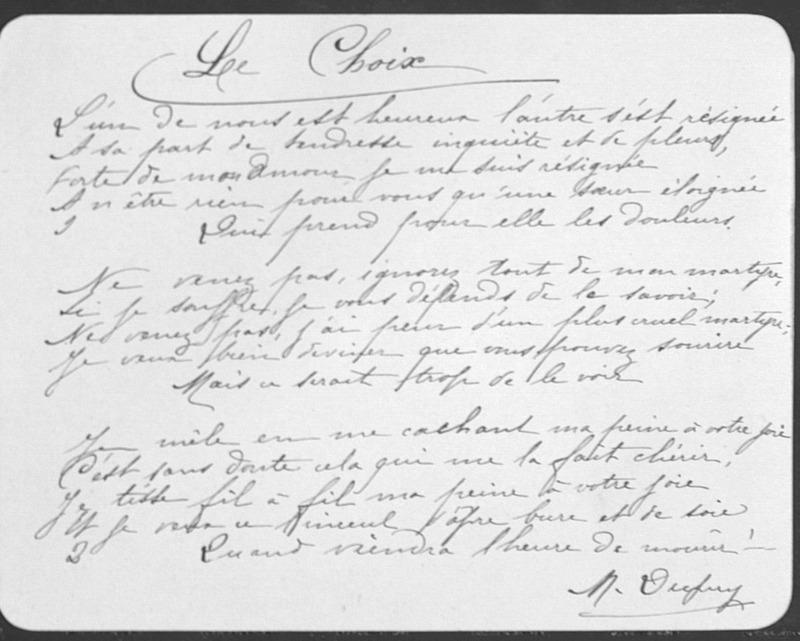 Le Choix
L'un de nous est heureux l'autre s'est résignée
A sa part de tendresse inquiète et de pleurs,
Forte de mon Amour je me suis résignée
A n'être rien pour vous qu'une sœur éloignée
Qui prend pour elle les douleurs.
Ne venez pas, ignorez tout de mon martyre,
Si je souffre, je vous défends de le savoir;
Ne venez pas, j'ai peur d'un plus cruel martyre;
Je veux bien deviner que vous pouvez sourire
Mais ce serait trop de le voir
Je mêle en me cachant ma peine à votre joie
C'est sans doute cela qui me la fait chérir,
Je tisse fil à fil ma peine à votre joie
Et je veux ce linceul d'âpre bure et de soie
Quand viendra l'heure de mourir! —
M. Dufuy